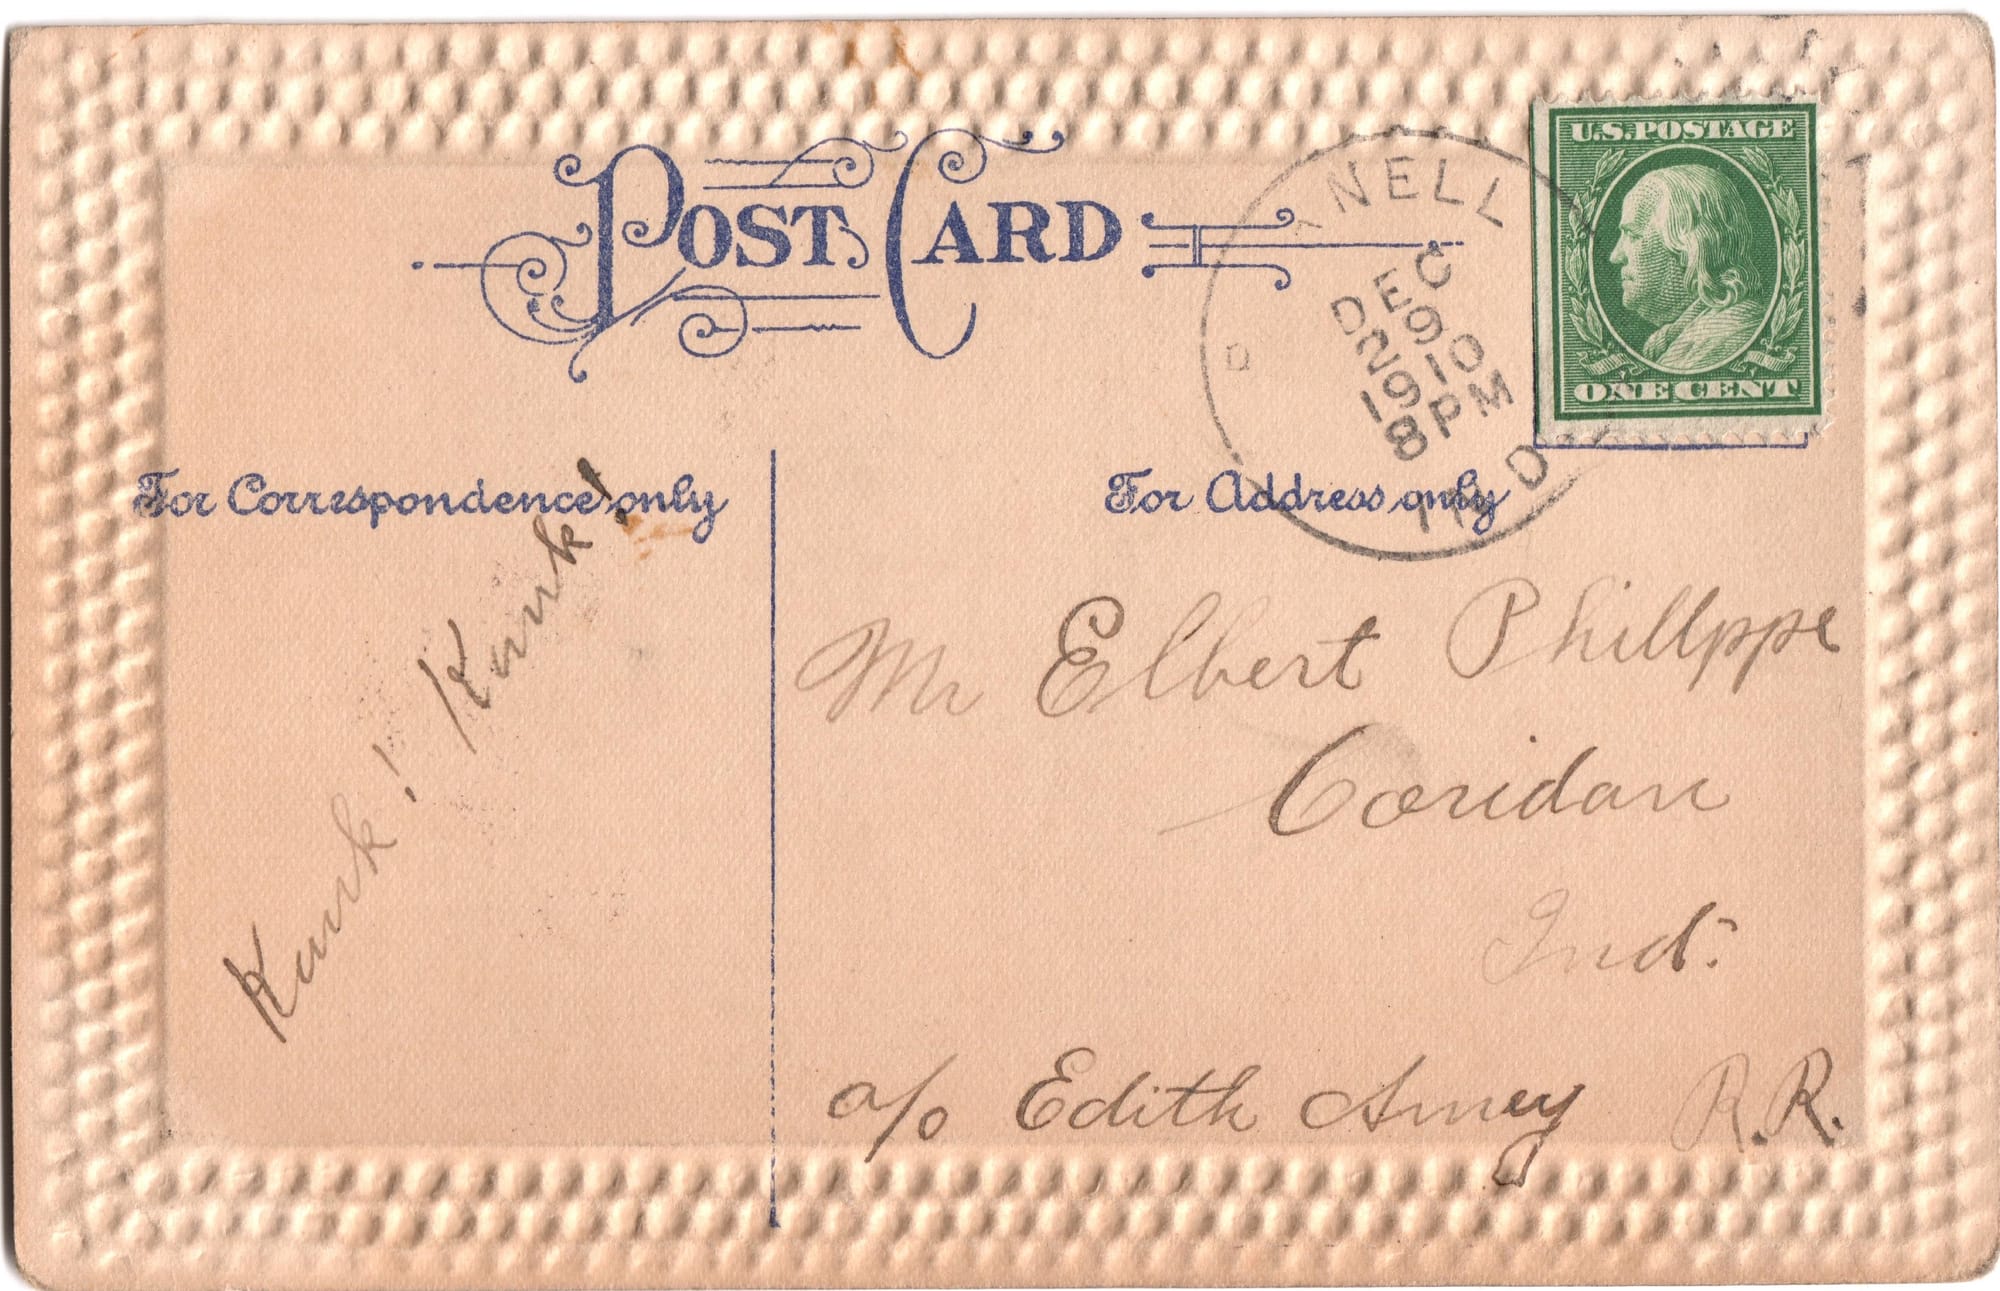 POST CARD
U.S. POSTAGE
ONE CENT
NELL
DEC
29
1910
8 PM
IND
For Correspondence only
For Address only
Kurk! Kurk!
Mr Elbert Phillppe
Coridan
Ind.
a/o Edith Amey R.R.